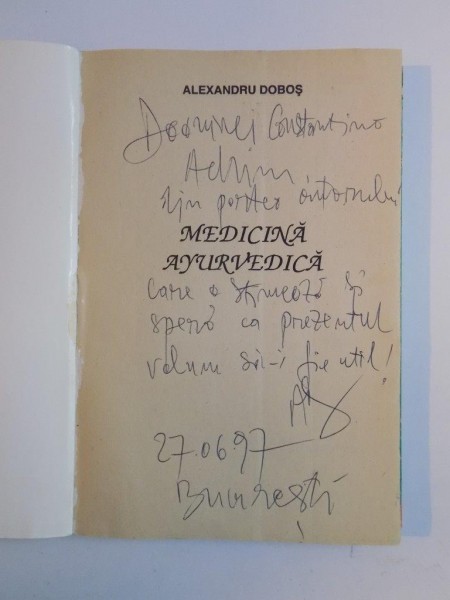 ALEXANDRU DOBOȘ
Doamnei Constantina
din partea autorului
MEDICINĂ
AYURVEDICĂ
care o stimează și
speră ca prezentul
volum să-i fie util!
27.06.97
București